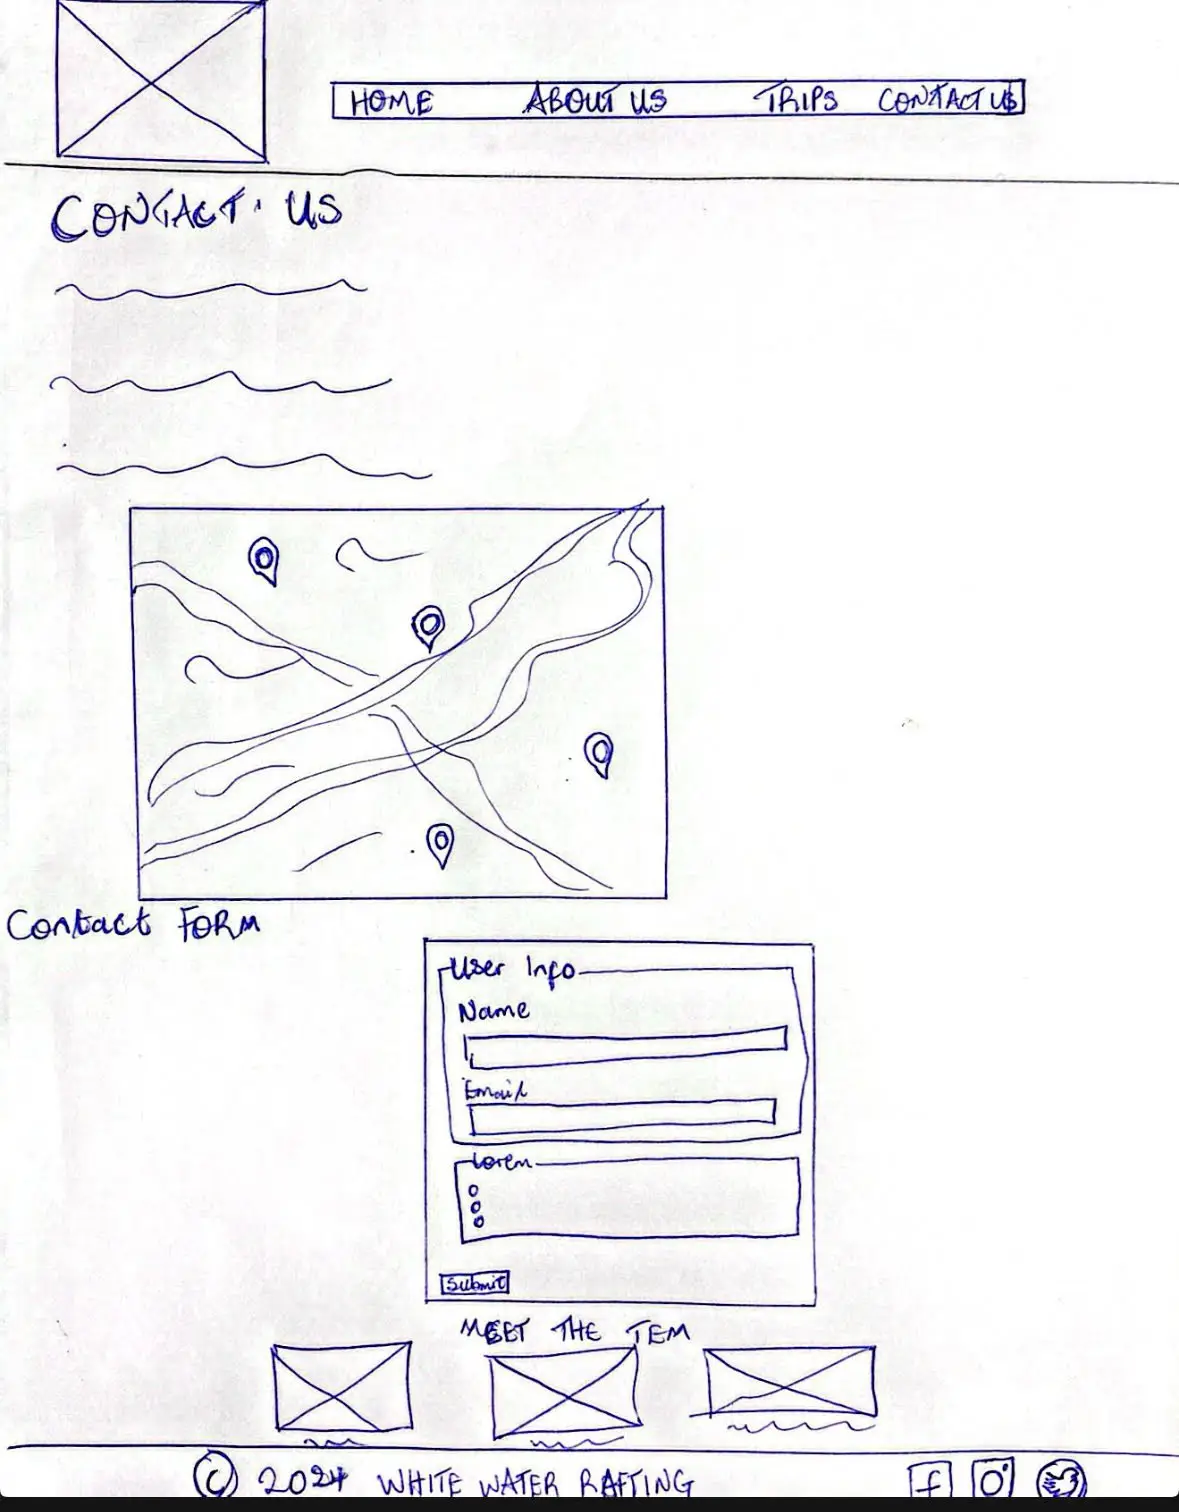 HOME ABOUT US TRIPS CONTACT US
CONTACT US
Contact FORM
User Info
Name
Email
Lorem
Submit
MEET THE TEM
© 2024 WHITE WATER RAFTING
f